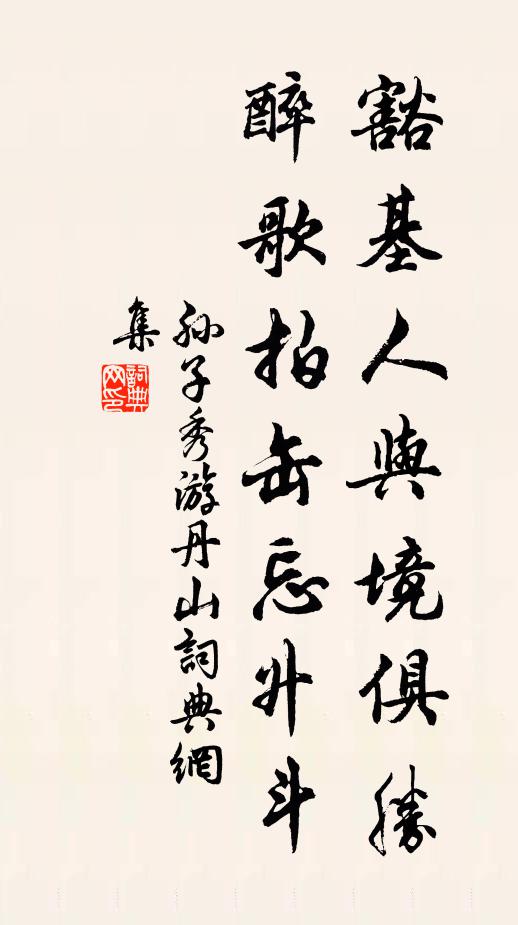 豁基人與境俱勝
醉歌拍缶忘升斗
孙子秀游丹山詞典網
集
詞典网印